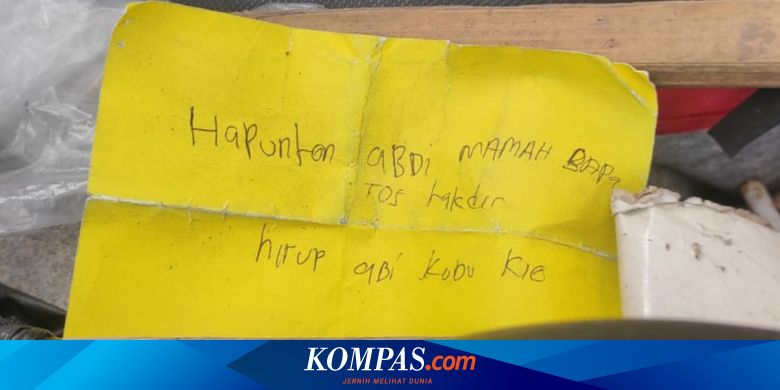 Hapunten aBDi MAMAH BAPa
TOS takdir
hirup aBi kudu kie
KOMPAS.com
JERNIH MELIHAT DUNIA